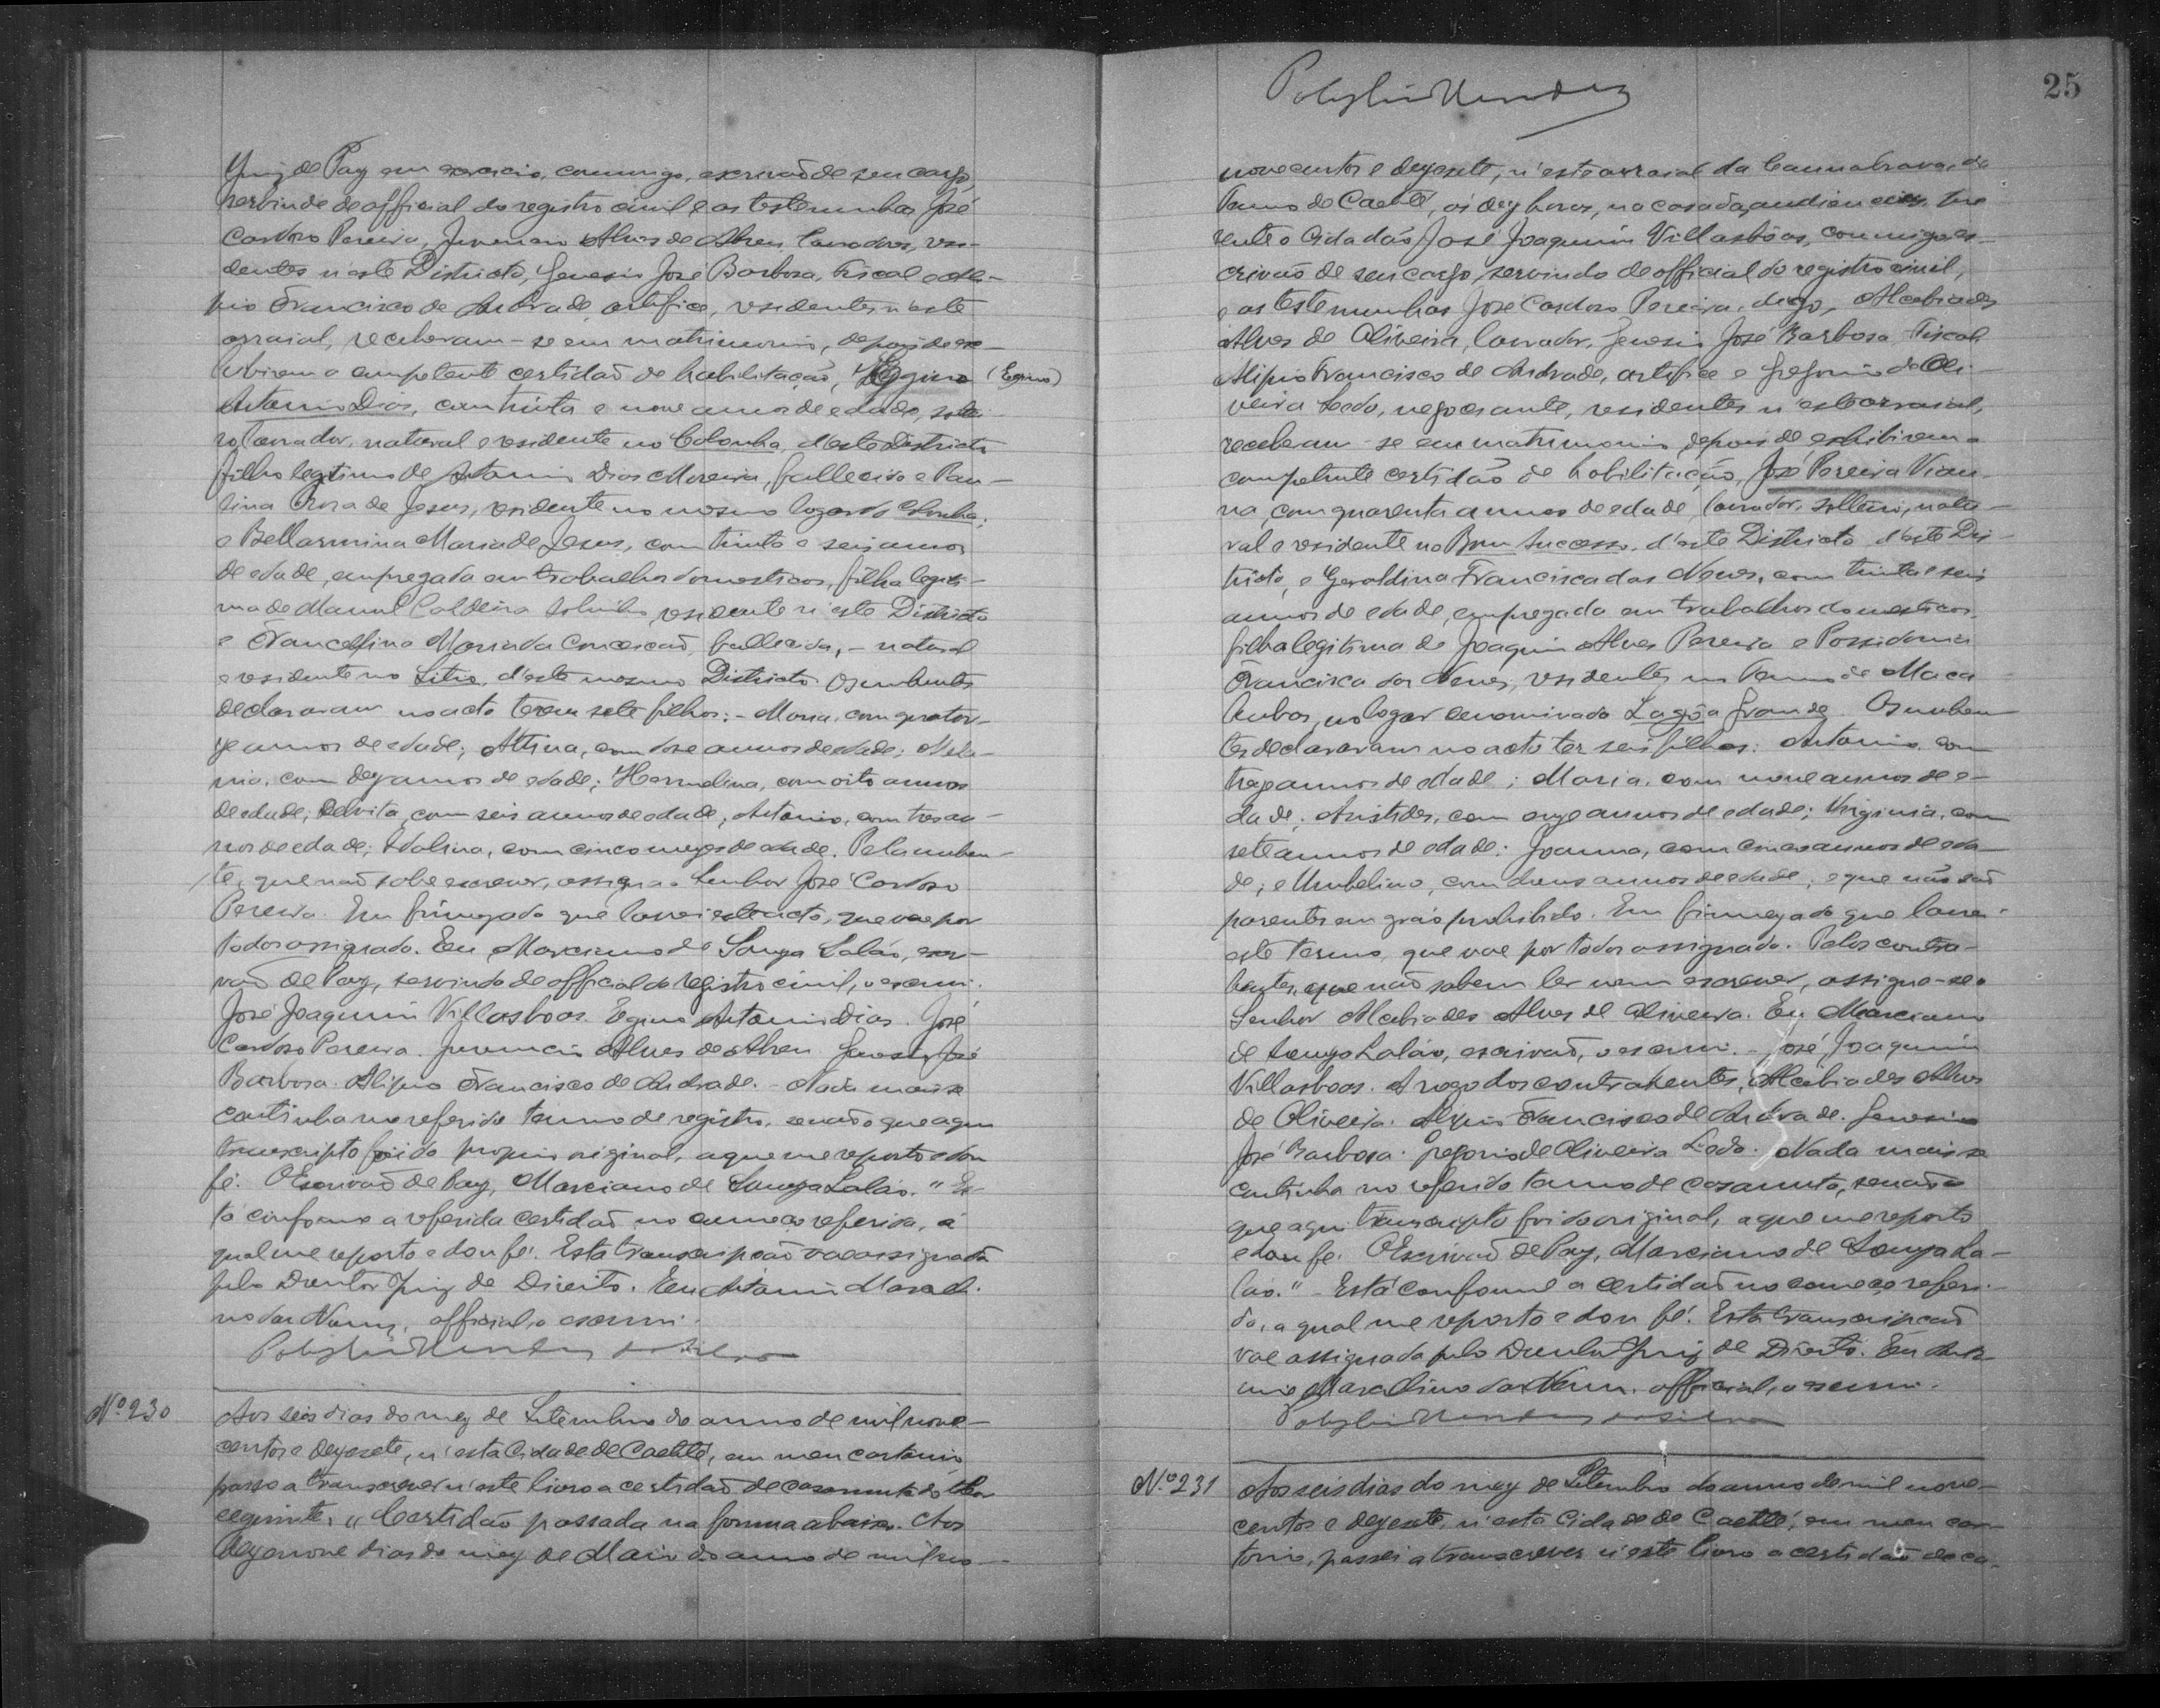 Juiz de Paz em exercicio, commigo, escrivão de seu cargo,
servindo de official do registro civil e as testemunhas José
Cardoso Pereira, Juvencio Alves de Abreu lavradores, resi-
dentes n'este Districto, Genesio José Barbosa, Fiscal e Ali-
pio Francisco de Andrade, artifice, residentes n'este
arraial, receberam-se em matrimonio, depois de ex-
hibirem a competente certidão de habilitação, (Egino)
Antonio Dias, com trinta e nove annos de edade, soltei-
ro, lavrador, natural e residente no d'este Districto
filho legitimo de Antonio Dias Moreira, fallecido e Pau-
lina Rosa de Jesus, residente no mesmo logar do
e Bellarmina Maria de Jesus, com trinta e seis annos
de edade, empregada em trabalhos domesticos, filha legiti-
ma de Manoel Caldeira residente n'este Districto
e Francellina Maria da Conceição, fallecida, - natural
e residente no Sitio, d'este mesmo Districto. Os nubentes
declararam no acto terem sete filhos: - Maria, com quator-
ze annos de edade; com dose annos de edade;
com dez annos de edade; Hermelina, com oito annos
de edade; com seis annos de edade; Antonio, com tres an-
nos de edade; Idalina, com cinco mezes de edade. Pela nuben-
te, que não sabe escrever, assigna o Senhor José Cardoso
Pereira. Em firmeza do que lavrei este acto, que vae por
todos assignado. Eu Marciano de Souza Lalão, escri-
vão de Paz, servindo de official do registro civil, o escrevi.
José Joaquim Villasboas. Egino Antonio Dias. José
Cardoso Pereira. Juvencio Alves de Abreu. Genesio José
Barbosa. Alipio Francisco de Andrade. - Nada mais se
continha no referido termo de registro, senão o que aqui
transcripto foi do proprio original, a que me reporto e dou
fé. O Escrivão de Paz, Marciano de Souza Lalão." Es-
tá conforme a referida certidão no começo referida, á
qual me reporto e dou fé. Esta transcripção vae assignada
pelo Doutor Juiz de Direito. Eu Antonio Marcelli-
no das Neves, official, o escrevi.
Nº 230
Aos seis dias do mez de Setembro do anno de mil nove-
centos e dezesete, n'esta Cidade de Caetité, em meu cartorio,
passo a transcrever n'este livro a certidão de casamento do theor
seguinte: "Certidão passada na forma abaixo. Aos
dezenove dias do mez de Maio do anno de mil no-
25
novecentos e dezesete, n'este arraial da Cannabrava, do
Termo de Caetité, ás dez horas, na casa da audiencia, pre-
sente o Cidadão José Joaquim Villasbôas, commigo es-
crivão de seu cargo, servindo de official do registro civil,
e as testemunhas José Cardoso Pereira, digo, Alcebiades
Alves de Oliveira, lavrador, Genesio José Barbosa, Fiscal,
Alipio Francisco de Andrade, artifice e Gregorio de Oli-
veira Ledo, negociante, residentes n'este arraial,
receberam-se em matrimonio, depois de exhibirem a
competente certidão de habilitação, José Pereira Vian-
na, com quarenta annos de edade, lavrador, solteiro, natu-
ral e residente no Bom Successo, d'este Districto d'este Dis-
tricto, e Geraldina Francisca das Neves, com trinta e seis
annos de edade, empregada em trabalhos domesticos,
filha legitima de Joaquim Alves Pereira e Possidonia
Francisca das Neves, residentes no Termo de Maca-
hubas, no logar denominado Lagôa Grande. Os nuben-
tes declararam no acto ter seis filhos: Antonio, com
treze annos de edade; Maria, com nove annos de e-
dade; Aristides, com onze annos de edade; Virginia, com
sete annos de edade; Joanna, com cinco annos de eda-
de; e Umbelino, com dous annos de edade; e que não são
parentes em gráo prohibido. Em firmeza do que lavrei
este termo, que vae por todos assignado. Pelos contra-
hentes, que não sabem ler nem escrever, assigna-se o
Senhor Alcebiades Alves de Oliveira. Eu Marciano
de Souza Lalão, escrivão, o escrevi. - José Joaquim
Villasboas. A rogo dos contrahentes, Alcebiades Alves
de Oliveira. Alipio Francisco de Andrade. Genesio
José Barbosa. Gregorio de Oliveira Ledo. Nada mais se
continha no referido termo de casamento, senão o
que aqui transcripto foi do original, a que me reporto
e dou fé. O Escrivão de Paz, Marciano de Souza La-
lão." - Está conforme a certidão no começo referi-
da, a qual me reporto e dou fé. Esta transcripção
vae assignada pelo Doutor Juiz de Direito. Eu Anto-
nio Marcellino das Neves, official, o escrevi.
Nº 231
Aos seis dias do mez de Setembro do anno de mil nove-
centos e dezesete, n'esta Cidade de Caetité, em meu car-
torio, passei a transcrever n'este livro a certidão de ca-